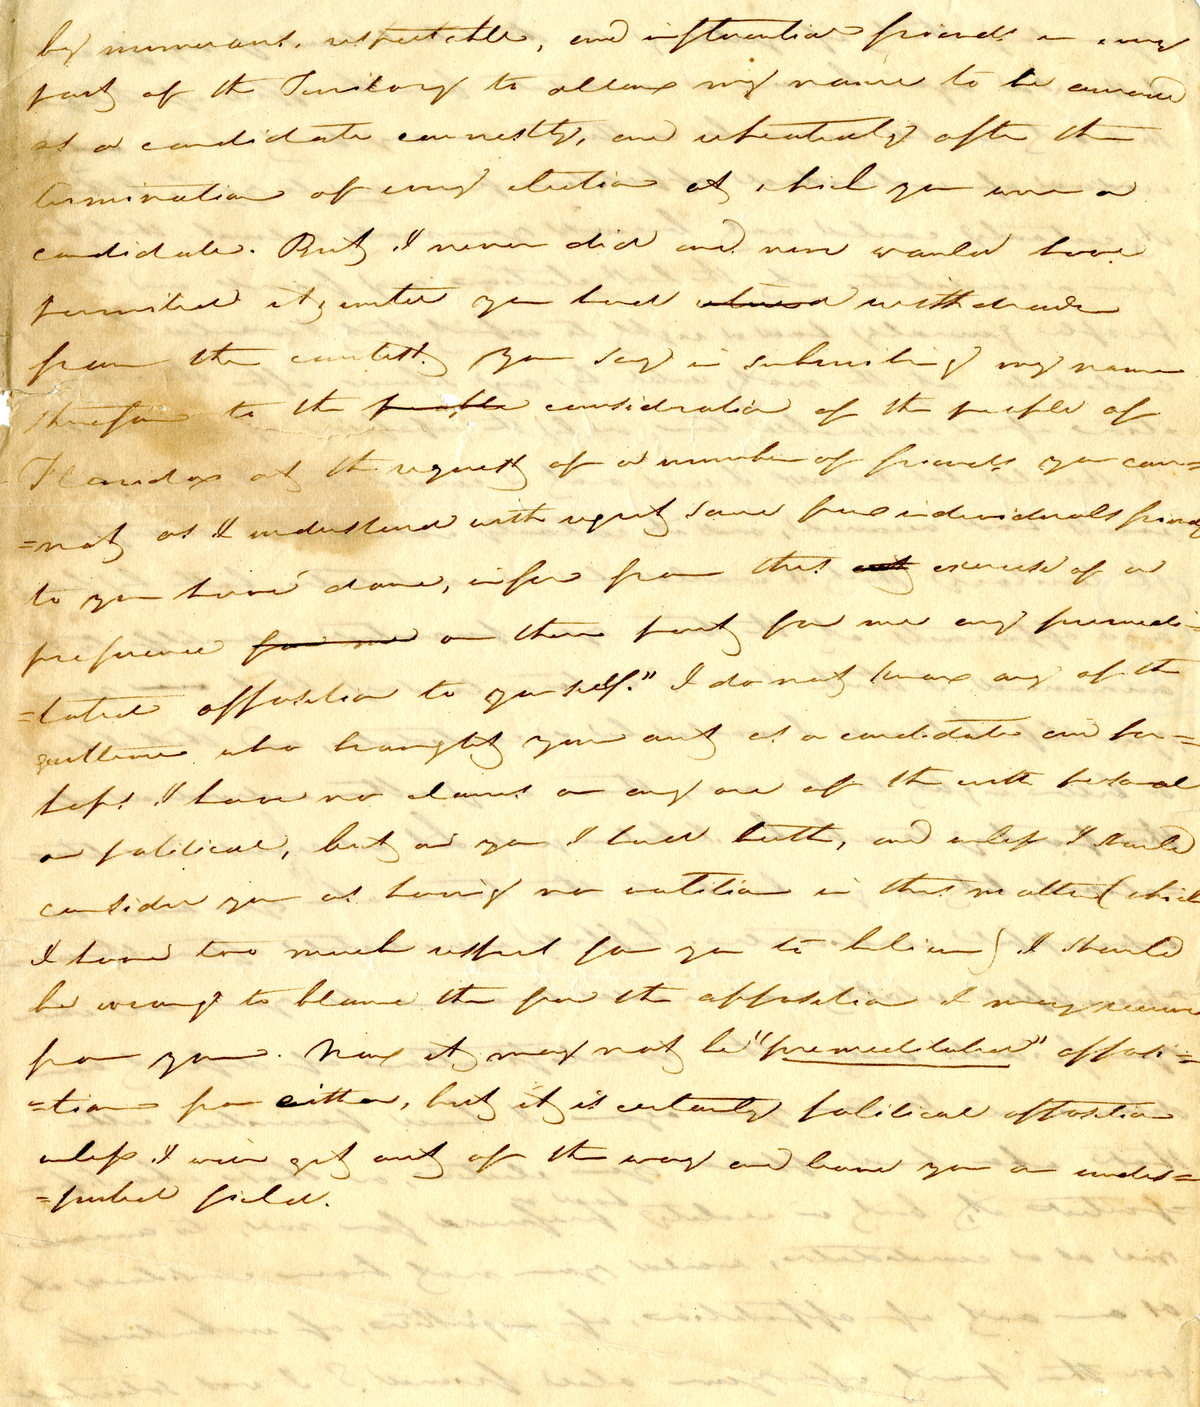 by numerous, respectable, and influential friends in every
part of the Territory to allow my name to be announced
as a candidate earnestly, and repeatedly after the
termination of every election at which you were a
candidate. But I never did and never would have
permitted it, until you had withdrawn
from the contest. You say "in subscribing my name
therefore to the people consideration of the people of
Florida at the request of a number of friends you can=
=not as I understand with regret some few individuals friendly
to you have done, infer from this act exercise of a
preference for me on their part for me any premedi=
=tated opposition to yourself." I do not know any of the
gentlemen who brought you out as a candidate and per=
haps I have no claims on any one of the with personal
or political, but on you I had both, and unless I should
consider you as having no volition in this matter (which
I have too much respect for you to believe) I should
be wrong to blame them for the opposition I may receive
from you. Now it may not be "premeditated" opposi=
=tion from either, but it is certainly political opposition
unless I will get out of the way and leave you an undis=
=puted field.